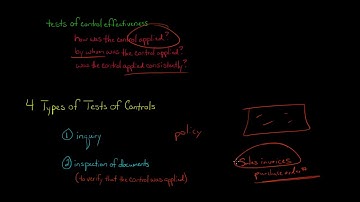 tests of control effectiveness
how was the control applied?
by whom was the control applied?
was the control applied consistently?
4 Types of Tests of Controls
① inquiry
policy
② inspection of documents
(to verify that the control was applied)
Sales invoices
purchase orders